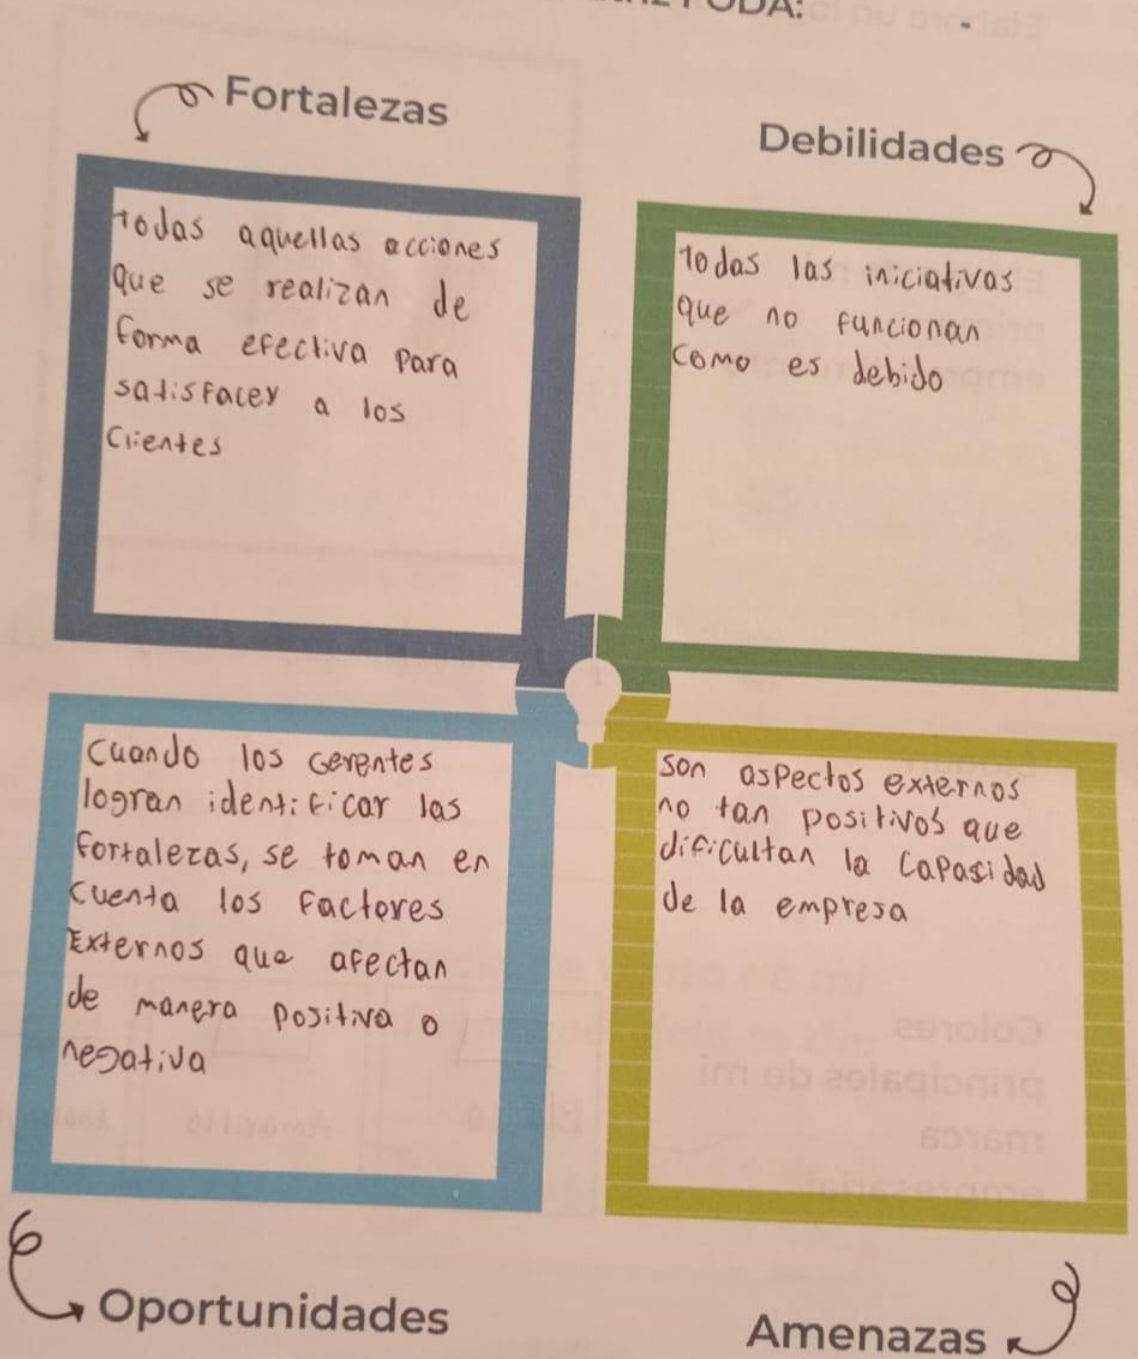 ODA:
Fortalezas
todas aquellas acciones
que se realizan de
forma efectiva para
satisfacer a los
Clientes
Debilidades
todas las iniciativas
que no funcionan
como es debido
Cuando los Gerentes
logran identificar las
fortalezas, se toman en
cuenta los factores
Externos que afectan
de manera positiva o
negativa
Oportunidades
son aspectos externos
no tan positivos que
dificultan la capasidad
de la empresa
Amenazas
Colores
principales de mi
marca
Amarillo